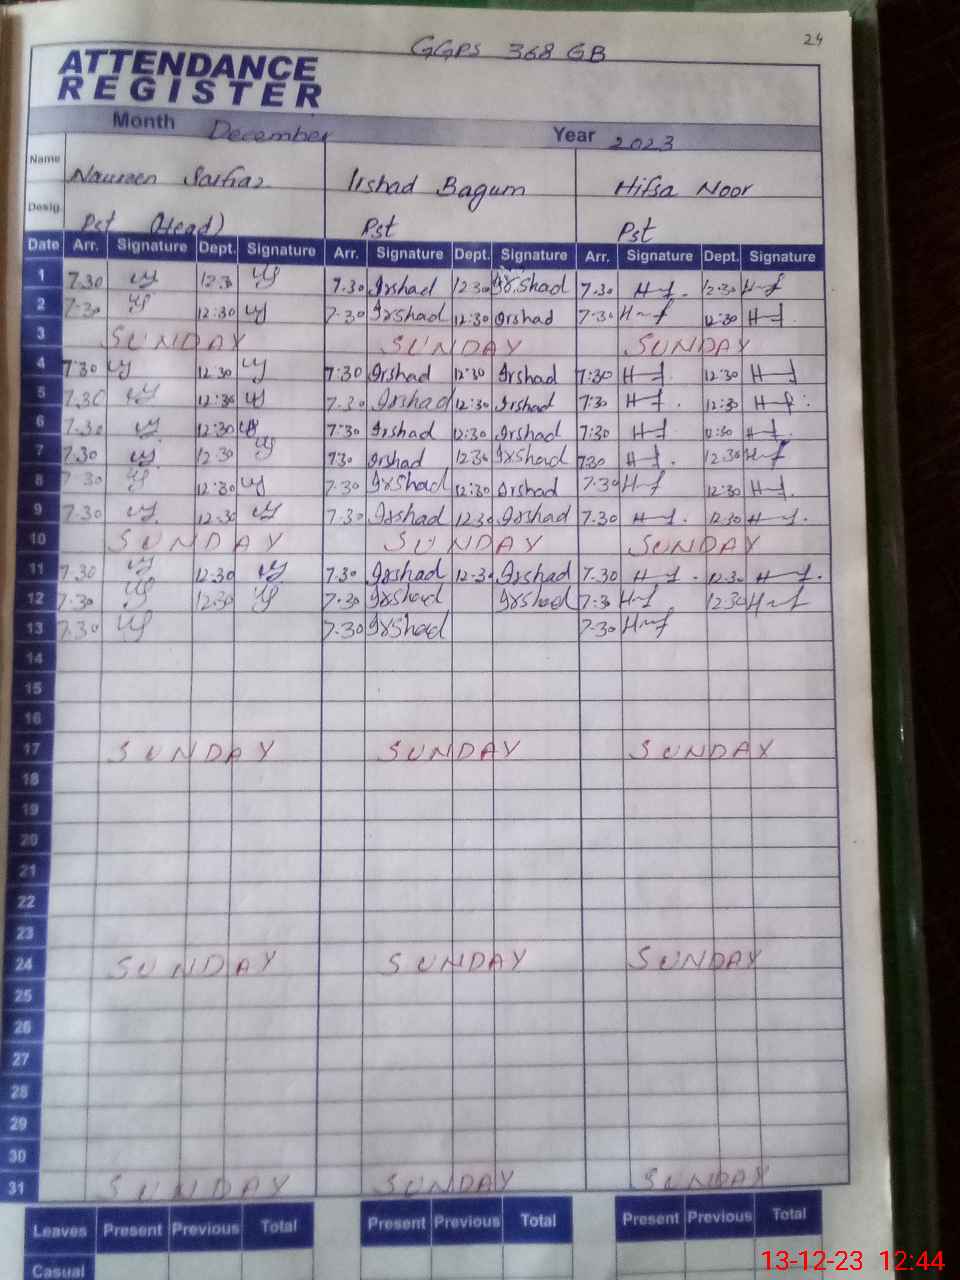 24
GGPS 368 GB
ATTENDANCE
REGISTER
Month December Year 2023
Name Naureen Sarfraz Irshad Bagum Hifsa Noor
Desig. Pst (Head) Pst Pst
Date Arr. Signature Dept. Signature Arr. Signature Dept. Signature Arr. Signature Dept. Signature
1 7.30 12.30 7.30 Irshad 12.30 Irshad 7.30 12.30
2 7.30 12:30 7.30 Irshad 12:30 Irshad 7.30 12:30
3 SUNDAY SUNDAY SUNDAY
4 7:30 12:30 7:30 Irshad 12:30 Irshad 7:30 12:30
5 7.30 12:30 7.30 Irshad 12:30 Irshad 7:30 12:30
6 7.30 12:30 7:30 Irshad 12:30 Irshad 7:30 12:30
7 7.30 12.30 730 Irshad 12.30 Irshad 730 12.30
8 7.30 12:30 7.30 Irshad 12:30 Irshad 7.30 12:30
9 7.30 12.30 7.30 Irshad 12.30 Irshad 7.30 12.30
10 SUNDAY SUNDAY SUNDAY
11 7.30 12.30 7.30 Irshad 12.30 Irshad 7.30 12.30
12 7.30 12.30 7.30 Irshad Irshad 7.30 12.30
13 7.30 7.30 Irshad 7.30
14
15
16
17 SUNDAY SUNDAY SUNDAY
18
19
20
21
22
23
24 SUNDAY SUNDAY SUNDAY
25
26
27
28
29
30
31 SUNDAY SUNDAY SUNDAY
Leaves Present Previous Total Present Previous Total Present Previous Total
Casual
13-12-23 12:44